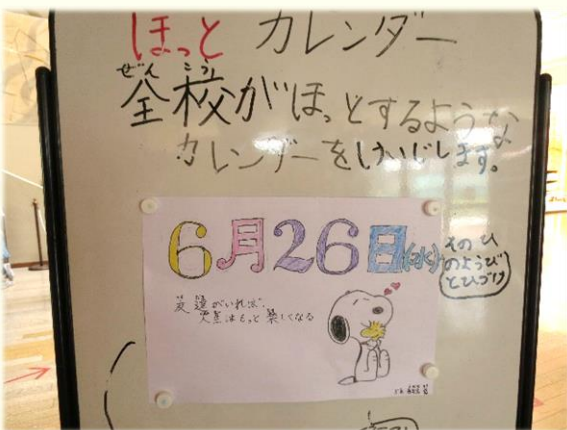 ほっと カレンダー
ぜん こう
全校がほっとするような
カレンダーをけいじします。
6月26日(水)
そのひ
のようび
とひづけ
がいれば、
はもっと楽しくなる